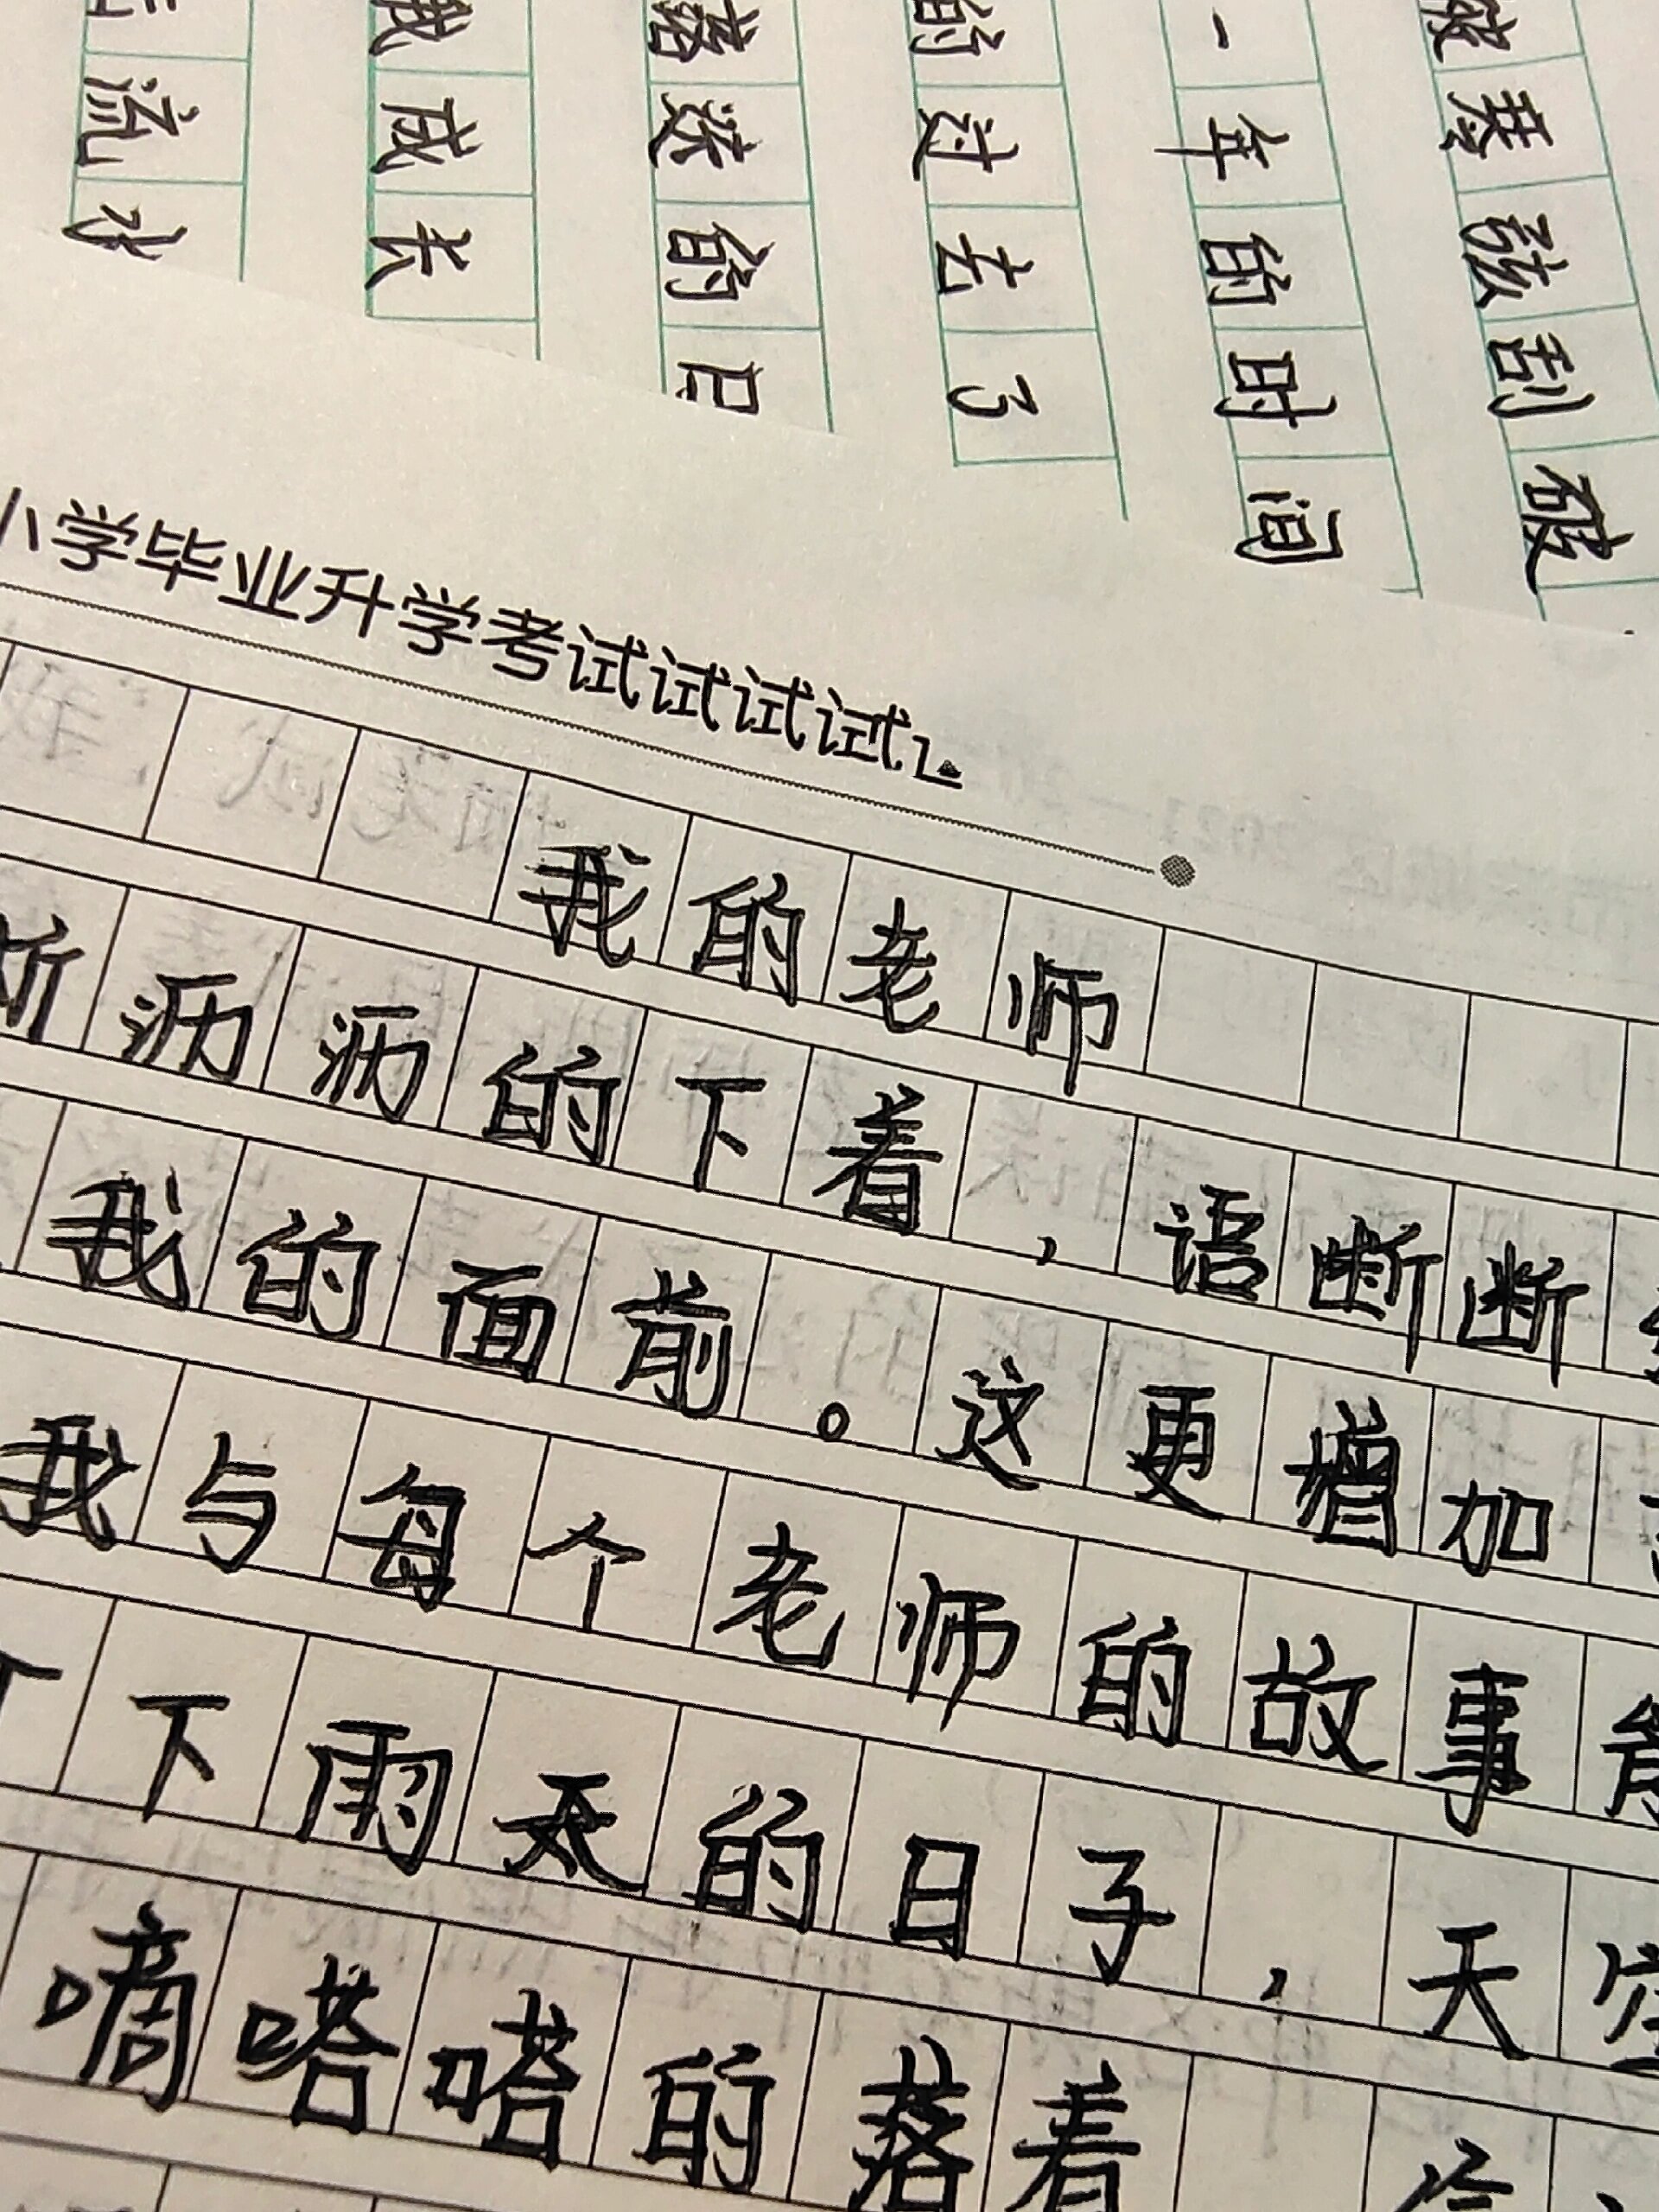 刮破
一年的时间
的过去了
的日
我成长
流水
小学毕业升学考试试试试
我的老师
沥沥的下着，语断断
我的面前。这更增加
我与每个老师的故事
下雨天的日子，天空
嘀嗒嗒的落着